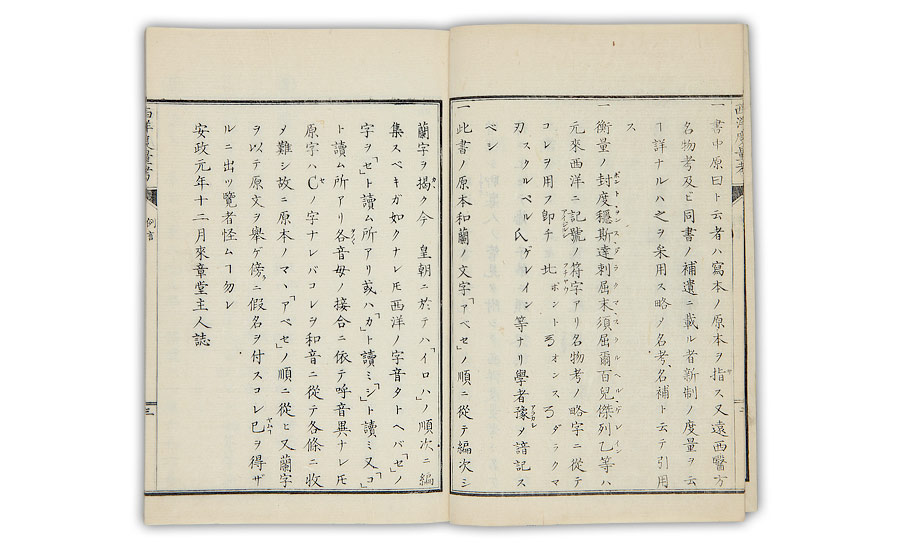 一書中原曰ト云者ハ寫本ノ原本ヲ指ス又遠西醫方
名物考及ヒ同書ノ補遺ニ載ル者新制ノ度量ヲ云
ヿ詳ナルハ之ヲ采用ス略メ名考、名補ト云テ引用
ス
一衡量ノ封度穩斯達刺屈末須屈爾百兒傑列乙等ハ
元來西洋ニ記號ノ符字アリ名物考ノ略字ニ從テ
コレヲ用フ卽チ ポント オンス ダラクマ
刃スクルペル氏ゲレイン等ナリ學者豫メ諳記ス
ベシ
一此書ノ原本和蘭ノ文字「アベセ」ノ順ニ從テ編次シ
蘭字ヲ揭ク今 皇朝ニ於テハ「イロハ」ノ順次ニ編
集スベキガ如クナレ𪜈西洋ノ字音タトヘバ「セ」ノ
字ヲ「セ」ト讀ム所アリ或ハ「カ」ト讀ミ「シ」ト讀ミ又「コ」
ト讀ム所アリ各音毋ノ接合ニ依テ呼音異ナレ𪜈
原字ハCノ字ナレバコレヲ和音ニ從テ各條ニ收
メ難シ故ニ原本ノマヽ「アベセ」ノ順ニ從ヒ又蘭字
ヲ以テ原文ヲ舉ゲ傍ニ假名ヲ付スコレ已ヲ得ザ
ルニ出ツ覽者怪ムヿ勿レ
安政元年十二月來章堂主人誌
西洋度量考
例言
三